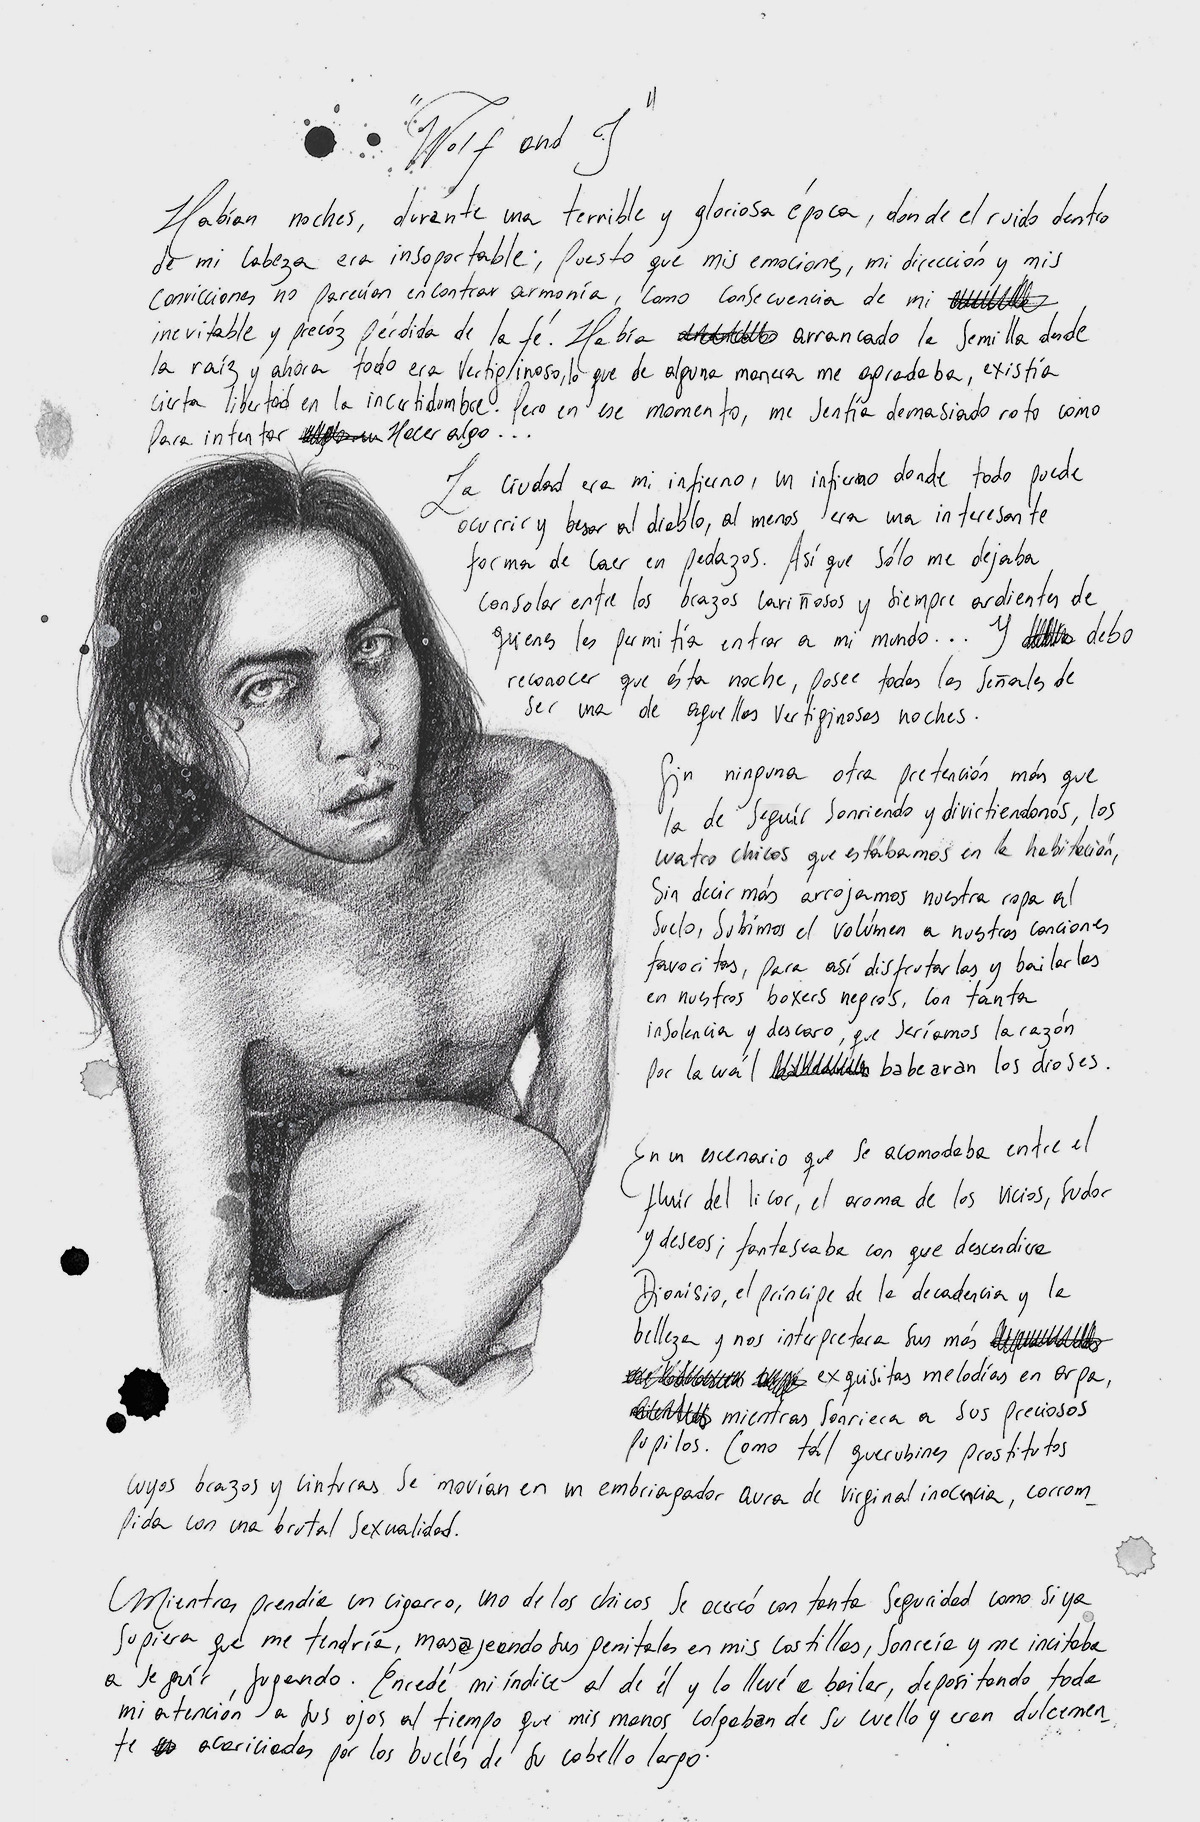 "Wolf and I"
Habían noches, durante una terrible y gloriosa época, donde el ruido dentro
de mi cabeza era insoportable; Puesto que mis emociones, mi dirección y mis
convicciones no parecían encontrar armonía, como consecuencia de mi
inevitable y precóz pérdida de la fé. Había arrancado la semilla desde
la raíz y ahora todo era vertiginoso, lo que de alguna manera me agradaba, existía
cierta libertad en la incertidumbre. Pero en ese momento, me sentía demasiado roto como
para intentar Hacer algo...
La ciudad era mi infierno, un infierno donde todo puede
ocurrir y besar al diablo, al menos era una interesante
forma de caer en pedazos. Así que sólo me dejaba
consolar entre los brazos cariñosos y siempre ardientes de
quienes les permitía entrar a mi mundo... Y debo
reconocer que ésta noche, posee todas las señales de
ser una de aquellas vertiginosas noches.
Sin ninguna otra pretención más que
la de seguir sonriendo y divirtiendonos, los
cuatro chicos que estábamos en la habitación,
sin decir más arrojamos nuestra ropa al
suelo, subimos el volúmen a nuestras canciones
favoritas, para así disfrutarlas y bailarlas
en nuestros boxers negros, con tanta
insolencia y descaro, que seríamos la razón
por la cuál babearan los dioses.
En un escenario que se acomodaba entre el
fluir del licor, el aroma de los vicios, sudor
y deseos; fantaseaba con que descendiera
Dionisio, el príncipe de la decadencia y la
belleza y nos interpretara sus más
exquisitas melodías en arpa,
mientras sonriera a sus preciosos
pupilos. Como tál querubines prostitutos
cuyos brazos y cinturas se movían en un embriagador aura de virginal inocencia, corrom_
pida con una brutal sexualidad.
Mientras prendía un cigarro, uno de los chicos se acercó con tanta seguridad como si ya
supiera que me tendría, masajeando sus genitales en mis costillas, sonreía y me incitaba
a seguir jugando. Enredé mi índice al de él y lo llevé a bailar, depositando toda
mi atención a sus ojos al tiempo que mis manos colgaban de su cuello y eran dulcemen_
te acariciadas por los buclés de su cabello largo.